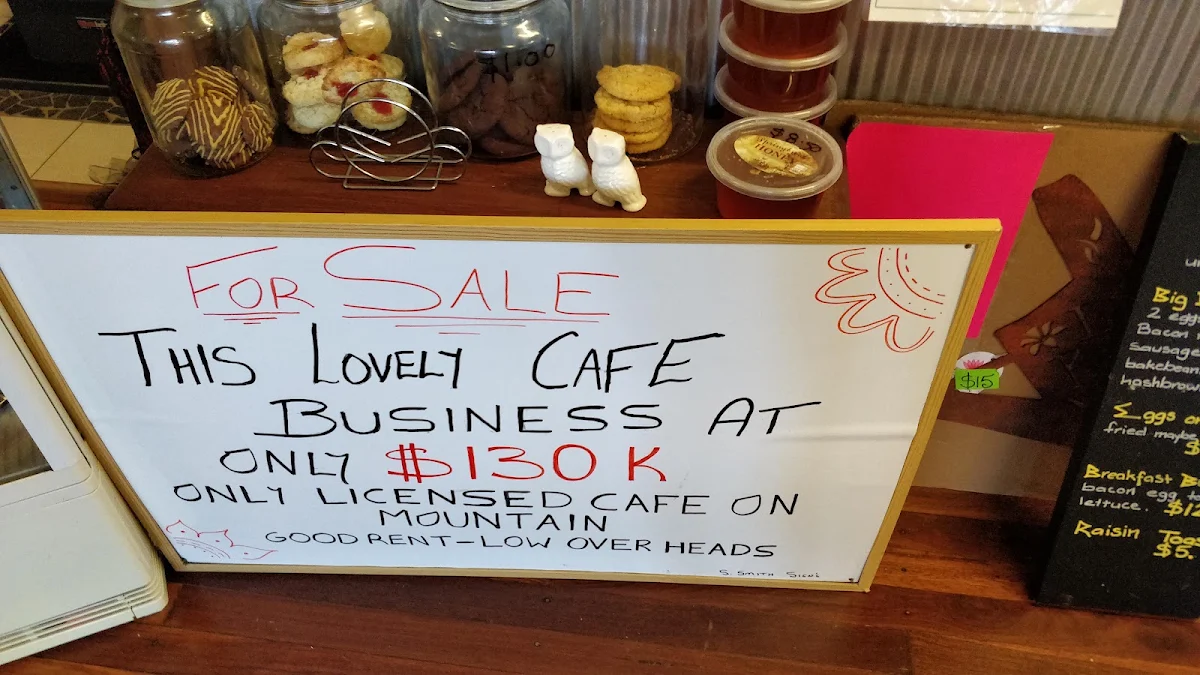 $1.00
$8.50
HONEY
FOR SALE
THIS LOVELY CAFE
BUSINESS AT
ONLY $130K
ONLY LICENSED CAFE ON
MOUNTAIN
GOOD RENT-LOW OVER HEADS
S. SMITH SIGNS
$15
Big
2 eggs
Bacon
Sausage
bakebean
hashbrow
Eggs on
fried
$
Breakfast B
bacon egg to
lettuce. $12
Raisin Toas
$5.